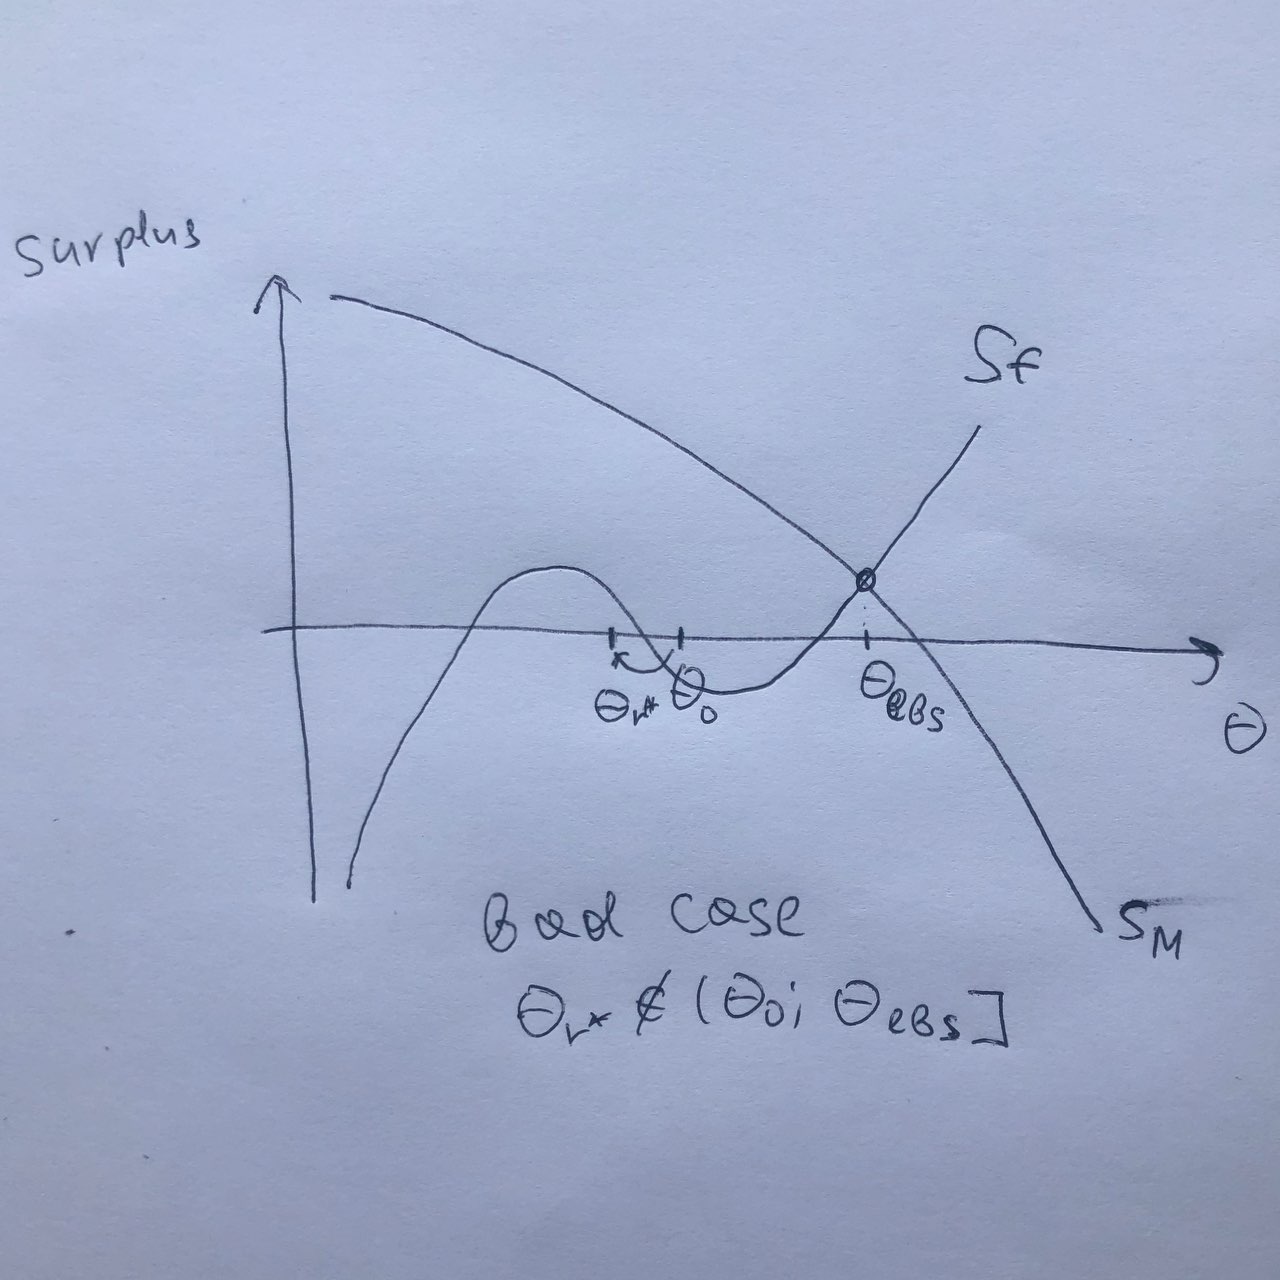 Surplus
Sf
θᵣ* θ₀
θₑBS
θ
Bad case
S_M
θᵣ* ∉ (θ₀; θₑBS]